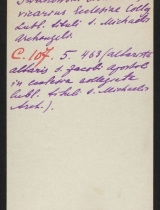 vicarius Ecclesiae Colle
tituli s. Michaelis
Archangeli.
C. 107. 5. 463 (altarista
altaris s. Jacobi Apostoli
in ecclesia collegiata
tituli s. Michaelis
Arch.).